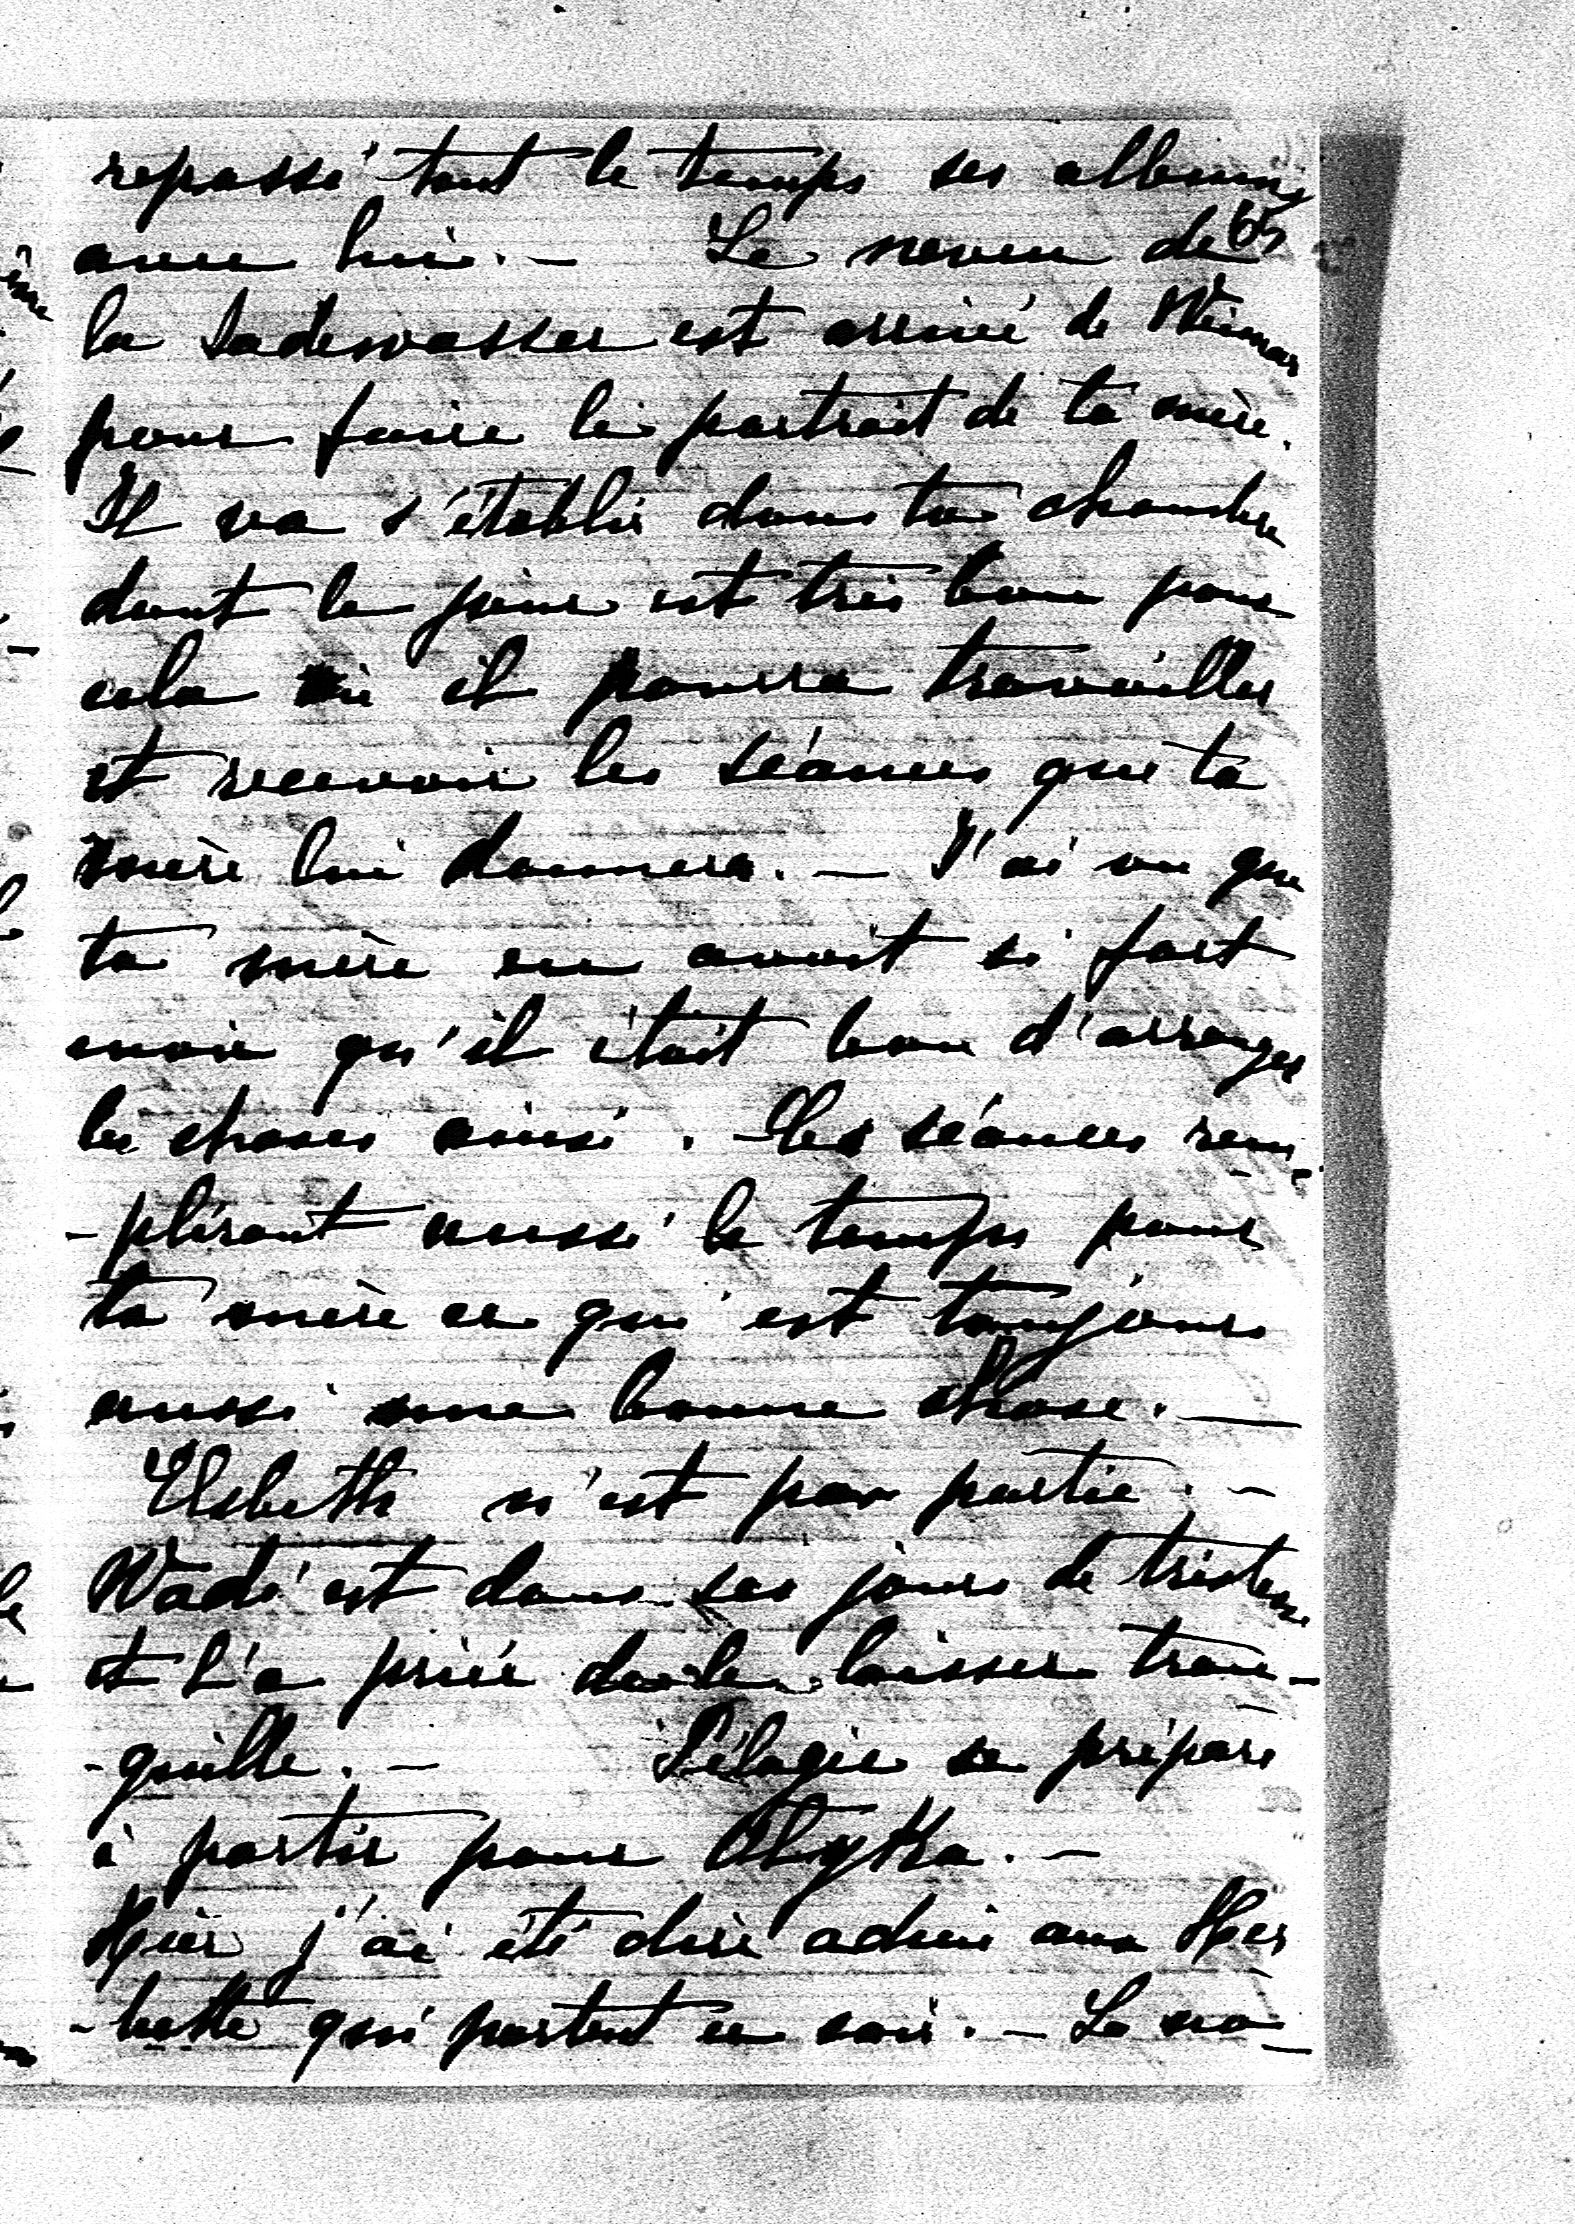 repassé tout le temps ses albums
avec lui. — Le neveu de 65
la Sadewasser est arrivé de Weimar
pour faire le portrait de ta mère.
Il va s'établir dans ta chambre
dont le jour est très bon pour
cela où il pourra travailler
et recevoir les séances que ta
mère lui donnera. — J'ai vu que
ta mère en avait si fort
envie qu'il était bon d'arranger
les choses ainsi. — Les séances rem-
-pliront aussi le temps pour
ta mère ce qui est toujours
aussi une bonne chose. —
Elsbeth n'est pas partie. —
Wadi est dans ses jours de tristesse
et l'a priée de le laisser tran-
-quille. — Pélagie se prépare
à partir pour Olyka. —
Hier j'ai été dire adieu aux Her
-bette qui partent ce soir. — La